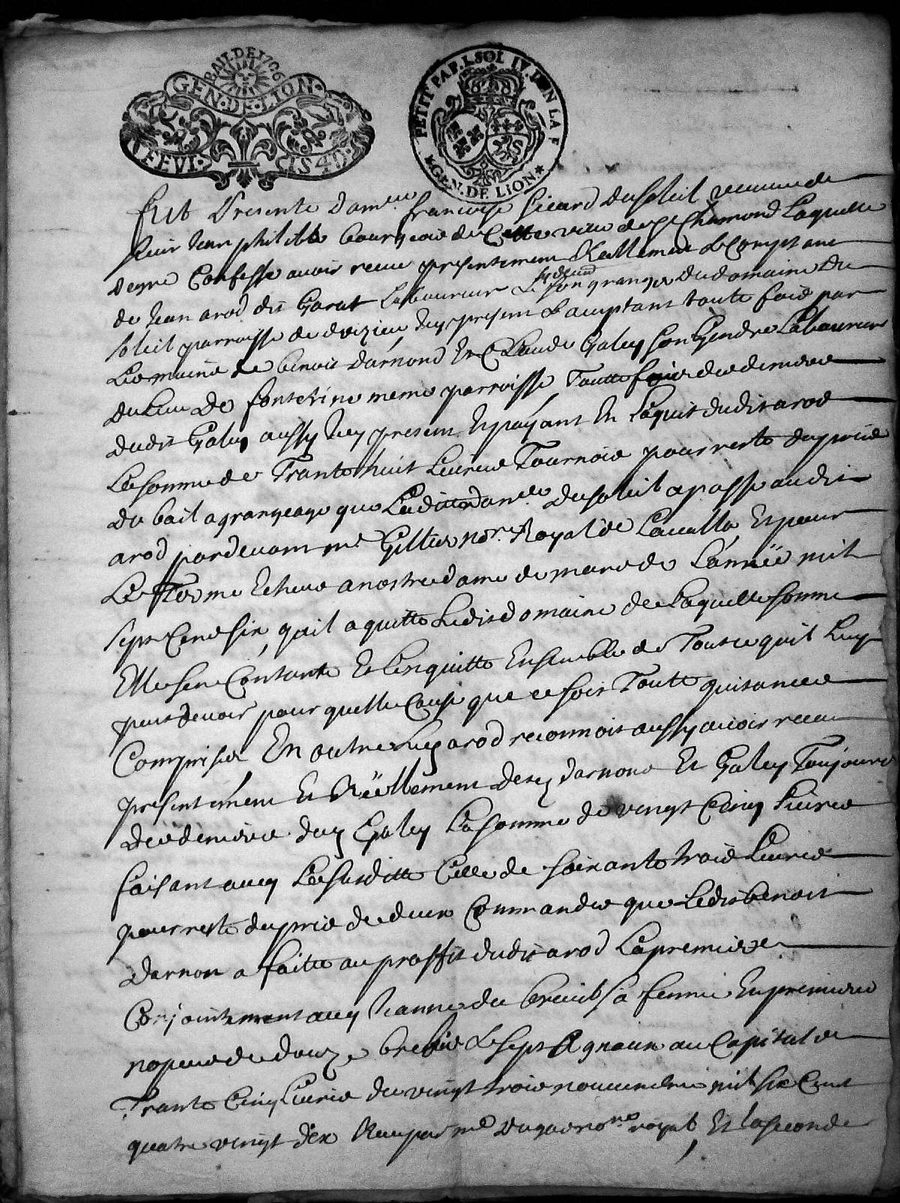 BAIL DE 1706
GEN. DE LION.
FEVI. 1840.
PETIT PAP. 1. SOL IV. DEN LA F
GEN. DE LION
fut Presente dam.lle francoise sicard Dusoleil veuve de
Sieur Jean philib bourgeois de Cette ville de St Chamond Laquelle
de gre Confesse avoir receu presentement & reellement Le Comptant
de Jean arod dit Garat Laboureur son granger du domaine du
soleil parroisse de doizieu icy present & acceptant toute fois par
Les mains de benoit Darnond Et Claude Galey son Gendre Laboureurs
du Lieu De fontetrine meme parroisse Toute fois des deniers
dudit Galey aussy icy present Et payant En Laquit dudit arod
La somme de Trante huit Livres Tournois pour reste du prix
du bail a grangeage que Laditte dam.lle Dusoleil a passe audit
arod pardevant m.e Gillier no.re Royal de Lavalla Et pour
Le Terme Echeu a nostre dame de mars de Lannée mil
sept Cens six, quil a quitte Ledit domaine de Laquelle somme
Elle sen Contante Et Len quitte Ensemble de Tout ce quil Luy
peut devoir pour quelle Cause que ce soit Toute quitances
Comprises En outre Luy arod reconnoit aussy avoir receu
presentement Et Réellement desd Darnond Et Galey Toujours
des deniers dud Galey La somme de vingt Cinq Livres
faisant avec La susditte Celle de soixante trois Livres
pour reste du prix de deux Commandes que Ledit benoit
Darnon a faitte au proffit dudit arod La premiere
Conjointement avec Jeanne du breuil sa femme En premieres
nopces de douze brebis & sept Agneaux au Capital de
Trante Cinq Livres du vingt trois novembre mil six Cent
quatre vingt dix Receu par m.e no.re royal, Et La seconde